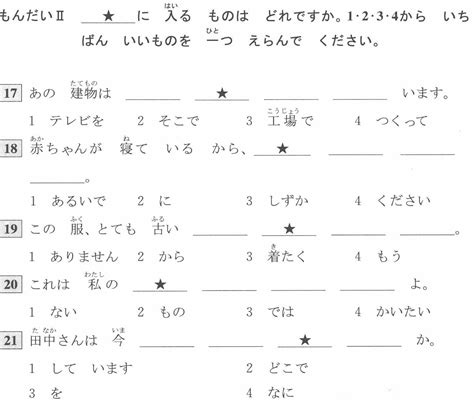 もんだいⅡ ＿＿★＿＿に 入る ものは どれですか。1・2・3・4から いち
ばん いいものを 一つ えらんで ください。
17 あの 建物は ＿＿＿ ＿★＿ ＿＿＿ ＿＿＿ います。
1 テレビを 2 そこで 3 工場で 4 つくって
18 赤ちゃんが 寝て いる から、＿★＿ ＿＿＿ ＿＿＿
＿＿＿。
1 あるいで 2 に 3 しずか 4 ください
19 この 服、とても 古い ＿＿＿ ＿★＿ ＿＿＿ ＿＿＿。
1 ありません 2 から 3 着たく 4 もう
20 これは 私の ＿★＿ ＿＿＿ ＿＿＿ ＿＿＿ よ。
1 ない 2 もの 3 では 4 かいたい
21 田中さんは 今 ＿＿＿ ＿＿＿ ＿★＿ ＿＿＿ か。
1 して います 2 どこで
3 を 4 なに